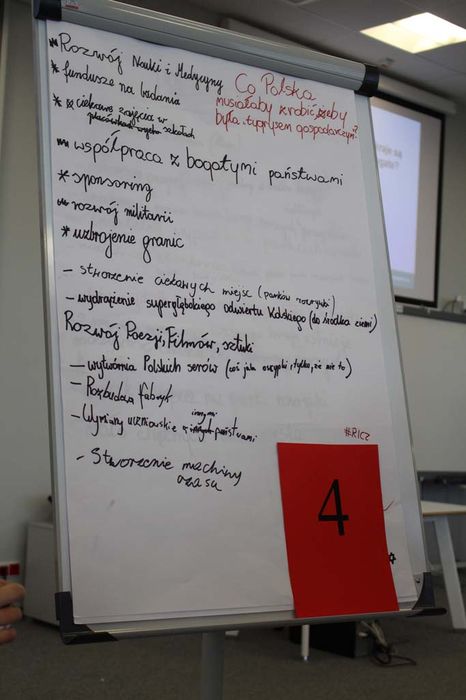 Rozwój Nauki i Medycyny
* fundusze na badania
* ciekawe zajęcia w
szkołach
Co Polska
musiałaby zrobić żeby
była tygrysem gospodarczym?
współpraca z bogatymi państwami
* sponsoring
rozwój militarii
* uzbrojenie granic
- stworzenie ciekawych miejsc (parków rozrywki)
- wydrążenie supergłębokiego odwiertu Kolskiego (do środka ziemi)
Rozwój Poezji, Filmów, sztuki
- wytwórnia Polskich serów (coś jak oscypki tylko, że nie to)
- Rozbudowa fabryk
- Wymiany uczniowskie z innymi państwami
- Stworzenie machiny
czasu
#RICZ
4